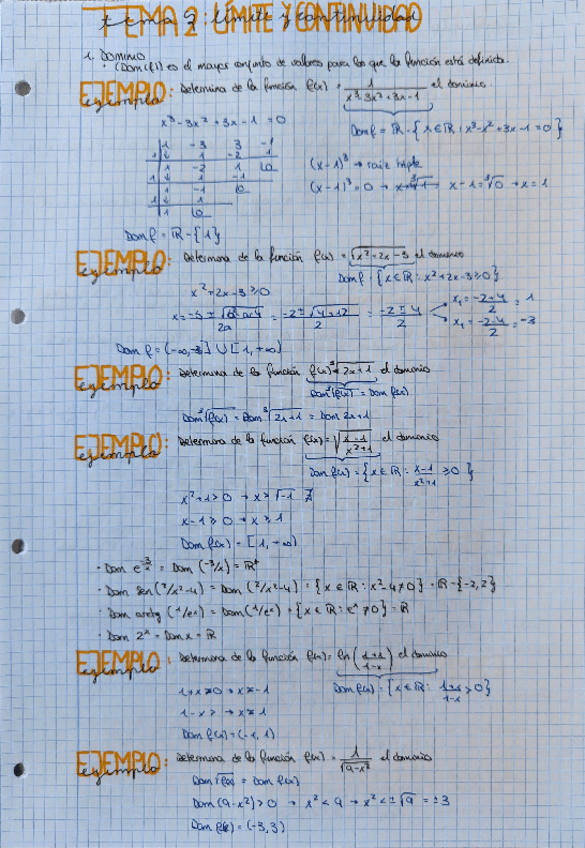 TEMA 2: LÍMITE Y CONTINUIDAD
1. DOMINIO
· (Dom(f)) es el mayor conjunto de valores para los que la función está definida.
EJEMPLO: Determina de la función f(x) = 1/(x³-3x²+3x-1) el dominio.
ejemplo
x³-3x²+3x-1=0
Dom f = ℝ - {x∈ℝ : x³-x²+3x-1=0}
1 -3 3 -1
1 ↓ 1 -2 1
1 -2 1 |0
1 ↓ 1 -1
1 -1 |0
1 ↓ 1
1 |0
(x-1)³ → raíz triple
(x-1)³=0 → x-1=³√0 → x=1
Dom f = ℝ - {1}
EJEMPLO: Determina de la función f(x) = √(x²+2x-3) el dominio
ejemplo
Dom f = {x∈ℝ : x²+2x-3≥0}
x²+2x-3≥0
x = (-b±√(b²-4ac))/2a = (-2±√(4+12))/2 = (-2±4)/2
x₁ = (-2+4)/2 = 1
x₁ = (-2-4)/2 = -3
Dom f = (-∞,-3] ∪ [1,+∞)
EJEMPLO: Determina de la función f(x)=³√(2x+1) el dominio
ejemplo
Dom ³√(f(x)) = Dom f(x)
Dom ³√(f(x)) = Dom ³√(2x+1) = Dom 2x+1
EJEMPLO: Determina de la función f(x)=√((x-1)/(x²+1)) el dominio
ejemplo
Dom f(x) = {x∈ℝ : (x-1)/(x²+1) ≥0}
x²+1>0 → x>√-1 ∄
x-1≥0 → x≥1
Dom f(x) = [1,+∞)
· Dom e^(-3/x) = Dom (-3/x) = ℝ*
· Dom sen(2/x²-4) = Dom (2/x²-4) = {x∈ℝ : x²-4≠0} = ℝ-{-2,2}
· Dom arctg (1/eˣ) = Dom (1/eˣ) = {x∈ℝ : eˣ≠0} = ℝ
· Dom 2ˣ = Dom x = ℝ
EJEMPLO: Determina de la función f(x)= ln((1+x)/(1-x)) el dominio
ejemplo
1+x>0 → x>-1
Dom f(x) = {x∈ℝ : (1+x)/(1-x) >0}
1-x> → x≠1
Dom f(x) = (-1,1)
EJEMPLO: Determina de la función f(x)= 1/√(9-x²) el dominio
ejemplo
Dom √(f(x)) = Dom f(x)
Dom (9-x²)>0 → x²<9 → x²<±√9 = ±3
Dom f(x) = (-3,3)